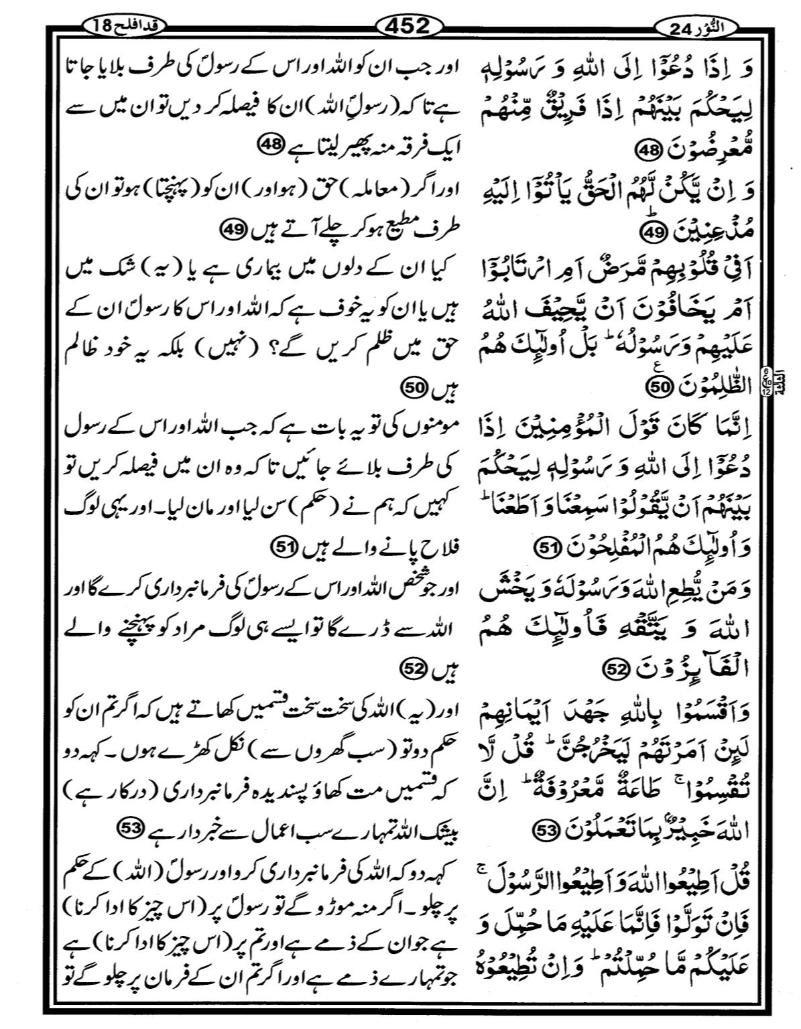 النُّوْر 24
452
قد افلح 18
وَ اِذَا دُعُوْۤا اِلَى اللّٰهِ وَ رَسُوْلِهٖ
لِيَحْكُمَ بَيْنَهُمْ اِذَا فَرِيْقٌ مِّنْهُمْ
مُّعْرِضُوْنَ 48
وَ اِنْ يَّكُنْ لَّهُمُ الْحَقُّ يَاْتُوْۤا اِلَيْهِ
مُذْعِنِيْنَ ؕ 49
اَفِيْ قُلُوْبِهِمْ مَّرَضٌ اَمِ ارْتَابُوْۤا
اَمْ يَخَافُوْنَ اَنْ يَّحِيْفَ اللّٰهُ
عَلَيْهِمْ وَ رَسُوْلُهٗ ؕ بَلْ اُولٰٓئِكَ هُمُ
الظّٰلِمُوْنَ 50
اِنَّمَا كَانَ قَوْلَ الْمُؤْمِنِيْنَ اِذَا
دُعُوْۤا اِلَى اللّٰهِ وَ رَسُوْلِهٖ لِيَحْكُمَ
بَيْنَهُمْ اَنْ يَّقُوْلُوْا سَمِعْنَا وَ اَطَعْنَا ؕ
وَ اُولٰٓئِكَ هُمُ الْمُفْلِحُوْنَ 51
وَ مَنْ يُّطِعِ اللّٰهَ وَ رَسُوْلَهٗ وَ يَخْشَ
اللّٰهَ وَ يَتَّقْهِ فَاُولٰٓئِكَ هُمُ
الْفَآئِزُوْنَ 52
وَ اَقْسَمُوْا بِاللّٰهِ جَهْدَ اَيْمَانِهِمْ
لَئِنْ اَمَرْتَهُمْ لَيَخْرُجُنَّ ؕ قُلْ لَّا
تُقْسِمُوْا ۚ طَاعَةٌ مَّعْرُوْفَةٌ ؕ اِنَّ
اللّٰهَ خَبِيْرٌۢ بِمَا تَعْمَلُوْنَ 53
قُلْ اَطِيْعُوا اللّٰهَ وَ اَطِيْعُوا الرَّسُوْلَ ۚ
فَاِنْ تَوَلَّوْا فَاِنَّمَا عَلَيْهِ مَا حُمِّلَ وَ
عَلَيْكُمْ مَّا حُمِّلْتُمْ ؕ وَ اِنْ تُطِيْعُوْهُ
اور جب ان کو اللہ اور اس کے رسولؐ کی طرف بلایا جاتا
ہے تاکہ (رسولِؐ اللہ) ان کا فیصلہ کر دیں تو ان میں سے
ایک فرقہ منہ پھیر لیتا ہے 48
اور اگر (معاملہ) حق (ہو اور) ان کو (پہنچتا) ہو تو ان کی
طرف مطیع ہو کر چلے آتے ہیں 49
کیا ان کے دلوں میں بیماری ہے یا (یہ) شک میں
ہیں یا ان کو یہ خوف ہے کہ اللہ اور اس کا رسولؐ ان کے
حق میں ظلم کریں گے؟ (نہیں) بلکہ یہ خود ظالم
ہیں 50
مومنوں کی تو یہ بات ہے کہ جب اللہ اور اس کے رسول
کی طرف بلائے جائیں تاکہ وہ ان میں فیصلہ کریں تو
کہیں کہ ہم نے (حکم) سن لیا اور مان لیا۔ اور یہی لوگ
فلاح پانے والے ہیں 51
اور جو شخص اللہ اور اس کے رسولؐ کی فرمانبرداری کرے گا اور
اللہ سے ڈرے گا تو ایسے ہی لوگ مراد کو پہنچنے والے
ہیں 52
اور (یہ) اللہ کی سخت سخت قسمیں کھاتے ہیں کہ اگر تم ان کو
حکم دو تو (سب گھروں سے) نکل کھڑے ہوں۔ کہہ دو
کہ قسمیں مت کھاؤ پسندیدہ فرمانبرداری (درکار ہے)
بیشک اللہ تمہارے سب اعمال سے خبردار ہے 53
کہہ دو کہ اللہ کی فرمانبرداری کرو اور رسولؐ (اللہ) کے حکم
پر چلو۔ اگر منہ موڑو گے تو رسولؐ پر (اس چیز کا ادا کرنا)
ہے جو ان کے ذمے ہے اور تم پر (اس چیز کا ادا کرنا) ہے
جو تمہارے ذمے ہے اور اگر تم ان کے فرمان پر چلو گے تو